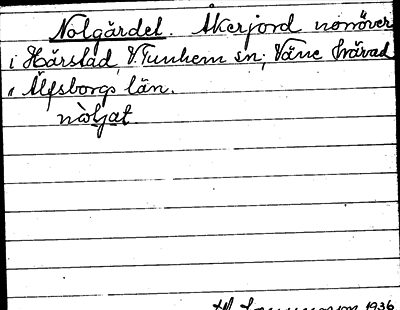 Nolgärdet. Åkerjord norröver
i Hårstad, V. Tunhem sn; Väne härad
i Älfsborgs län.
nò̀ljat
1936